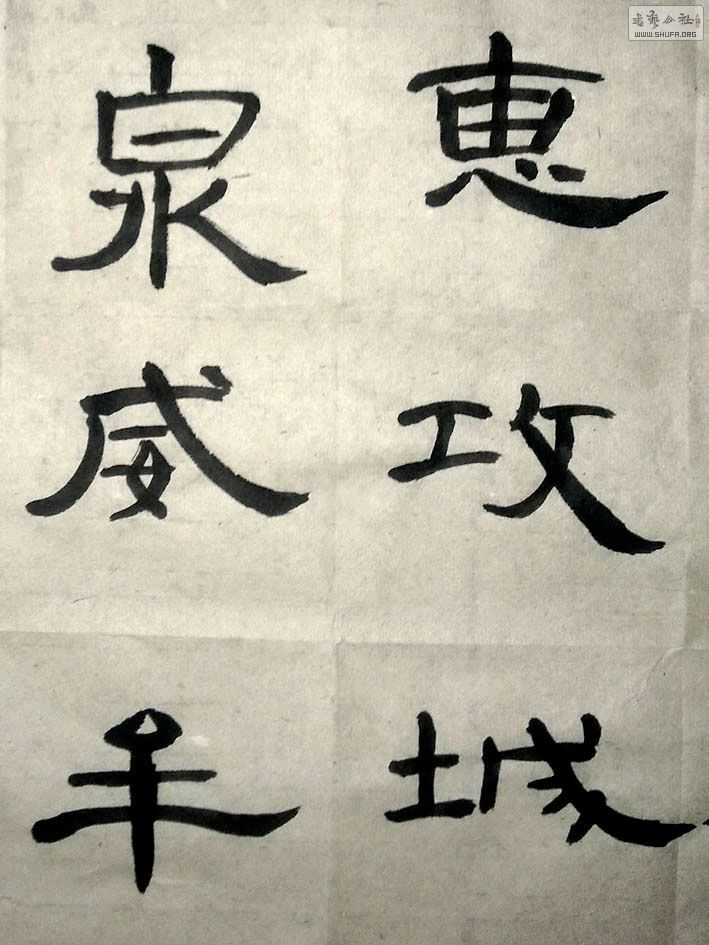 惠攻城
泉威牟
書藝公社
WWW.SHUFA.ORG